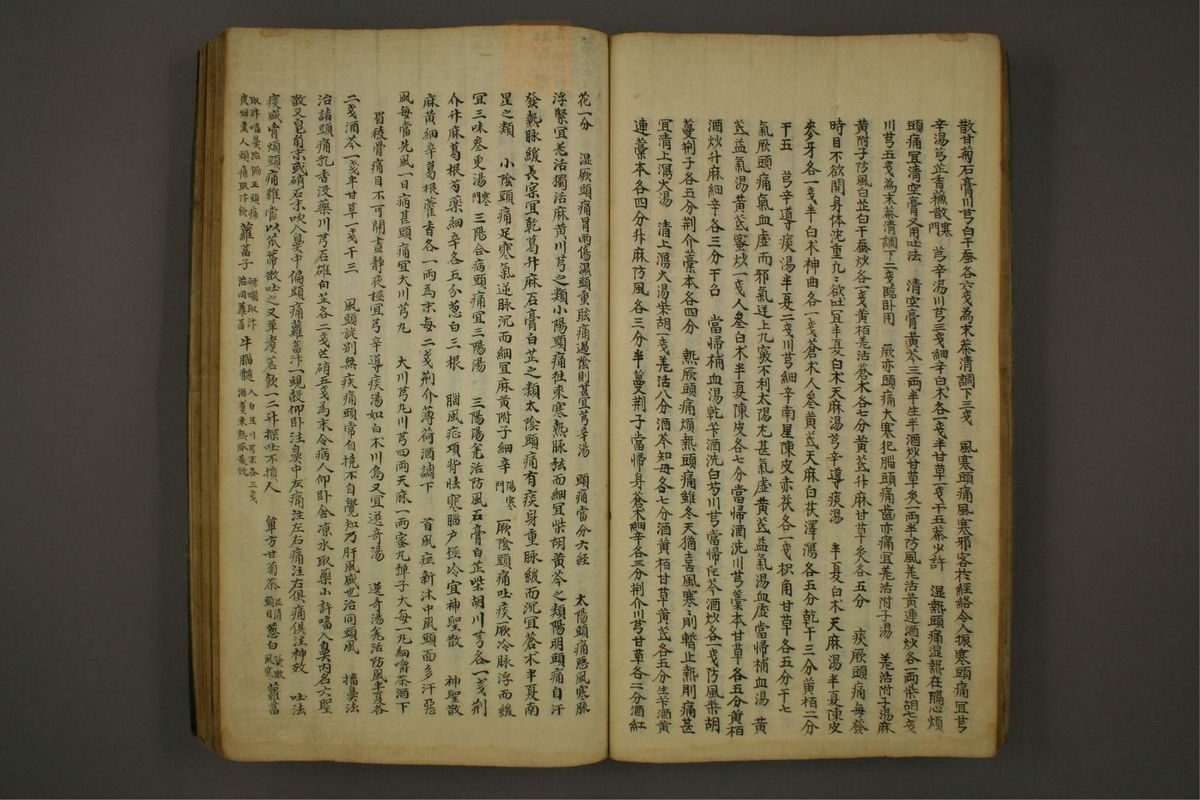 散甘菊石膏川芎白干蚕各六戔爲末茶清調下三戔　風寒頭痛風寒邪客於經絡令人振寒頭痛宜芎
辛湯芎芷香蘓散寒門　芎辛湯川芎三戔細辛白朮各一戔半甘草一戔干五茶少許　湿熱頭痛湿熱在腦心煩
頭痛宜清空膏又用吐法　清空膏黃芩三兩半生半酒炒甘草炙一兩半防風羌活黃連酒炒各一兩柴胡七戔
川芎五戔爲末茶清調下二戔臨卧用　厥亦頭痛大寒犯腦頭痛齒亦痛宜羌活附子湯　羌活附子湯麻
黃附子防風白芷白干蚕炒各一戔黃栢羌活蒼朮各七分黃芪升麻甘草炙各五分　痰厥頭痛每發
時目不欲開身体沈重兀兀欲吐宜半夏白朮天麻湯芎辛導痰湯　半夏白朮天麻湯半夏陳皮
麥牙各一戔半白朮神曲各一戔蒼朮人參黃芪天麻白茯澤瀉各五分乾干三分黃栢二分
干五　芎辛導痰湯半夏二戔川芎細辛南星陳皮赤茯各一戔枳角甘草各五分干七
氣厥頭痛氣血虛而邪氣逆上九竅不利太陽尤甚氣虛黃芪益氣湯血虛當帰補血湯　黃
芪益氣湯黃芪蜜炒一戔人參白朮半夏陳皮各七分當帰酒洗川芎藁本甘草各五分黃栢
酒炒升麻細辛各三分干召　當帰補血湯乾芐酒洗白芍川芎當帰片芩酒炒各一戔防風柴胡
蔓荊子各五分荊介藁本各四分　熱厥頭痛煩熱頭痛雖冬天猶喜風寒寒則暫止熱則痛甚
宜清上瀉火湯　清上瀉火湯柴胡一戔羌活八分酒芩知母各七分酒黃栢甘草黃芪各五分生芐酒黃
連藁本各四分升麻防風各三分半蔓荊子當帰身蒼朮細辛各三分荊介川芎甘草各二分酒紅
花一分　湿厥頭痛冒雨傷濕頭重眩痛遇陰則甚宜芎辛湯　頭痛當分六經　太陽頭痛惡風寒脉
浮緊宜羌活獨活麻黃川芎之類小陽頭痛往來寒熱脉弦而細宜柴胡黃芩之類陽明頭痛自汗
發熱脉緩長宗宜乾葛升麻石膏白芷之類太陰頭痛有痰身重脉緩而沉宜蒼朮半夏南
星之類　小陰頭痛足寒氣逆脉沉而細宜麻黃附子細辛陽寒門　厥陰頭痛吐痰厥冷脉浮而緩
宜三味參吏湯寒門　三陽合病頭痛宜三陽湯　三陽陽羌活防風石膏白芷柴胡川芎各一戔荊
介升麻葛根芍藥細辛各五分葱白三根　腦風症項背怯寒腦户極冷宜神聖散　神聖散
麻黃細辛葛根藿香各一兩爲末每二戔荊介薄荷酒調下　首風症新沐中風頭面多汗惡
風每當先風一日病甚頭痛宜大川芎丸　大川芎丸川芎四兩天麻一兩蜜丸弹子大每一丸細嚼茶酒下
眉稜骨痛目不可開晝靜夜極宜芎辛導痰湯如白朮川烏又宜选奇湯　选奇湯羌活防風半夏各
二戔酒芩一戔半甘草一戔干三　風頭旋別無疾痛頭常自撓不自覺知乃肝風盛也治同頭風　搐鼻法
治諸頭痛乳香沒藥川芎石雄白芷各二戔芒硝五戔爲末令病人仰卧含凉水取藥小許嗃入鼻內名六聖
散又皂角末或硝石末吹入鼻中偏頭痛蘿葍汁一蜆殼仰卧注鼻中左痛注左右痛注右俱痛俱注神效　吐法
痰盛胷煩頭痛難當以苽蒂散吐之又單煮茗飮一二升探吐不損人　單方甘菊茶頭目葱白風寒蘿葍
取汁嗃鼻治 頭痛　蘿葍子　研爛取汁治同蘿葍　牛腦髓　入白芷川芎末各三戔
人頭痛取汁飮